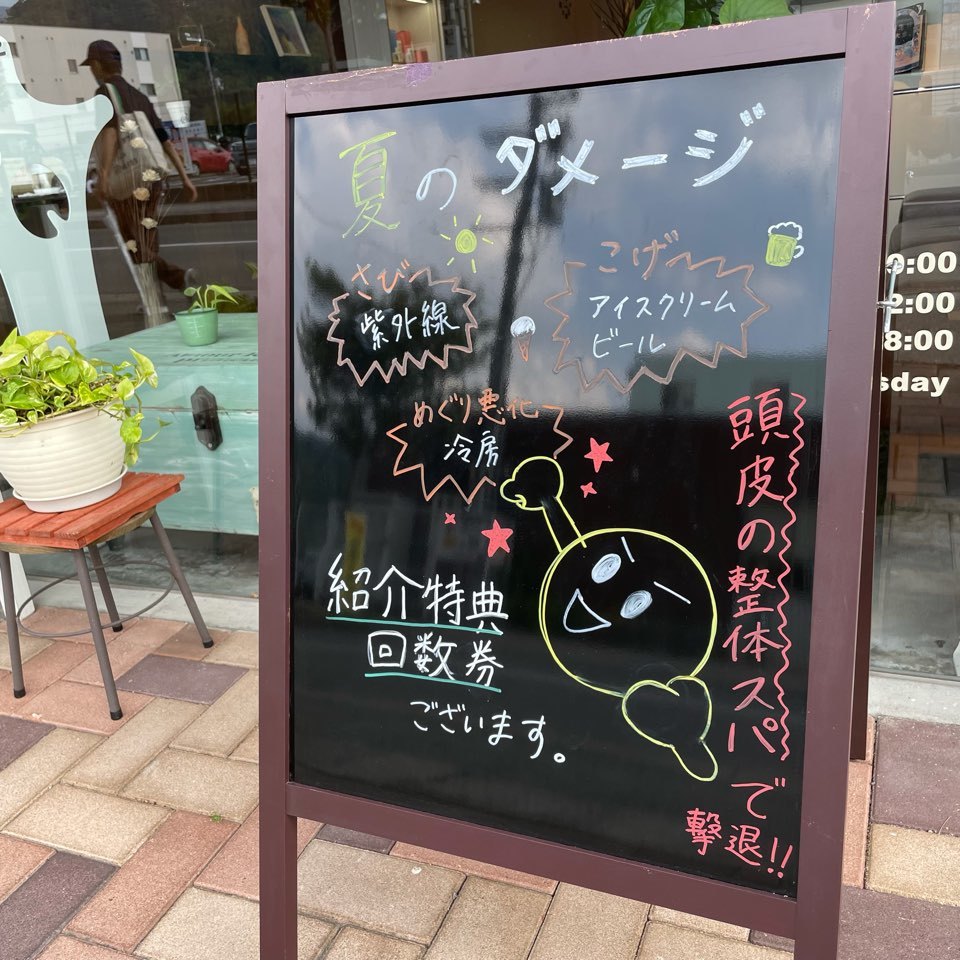 夏のダメージ
さび
紫外線
こげ
アイスクリーム
ビール
めぐり悪化
冷房
頭皮の整体スパで
撃退!!
紹介特典
回数券
ございます。
0:00
2:00
8:00
sday